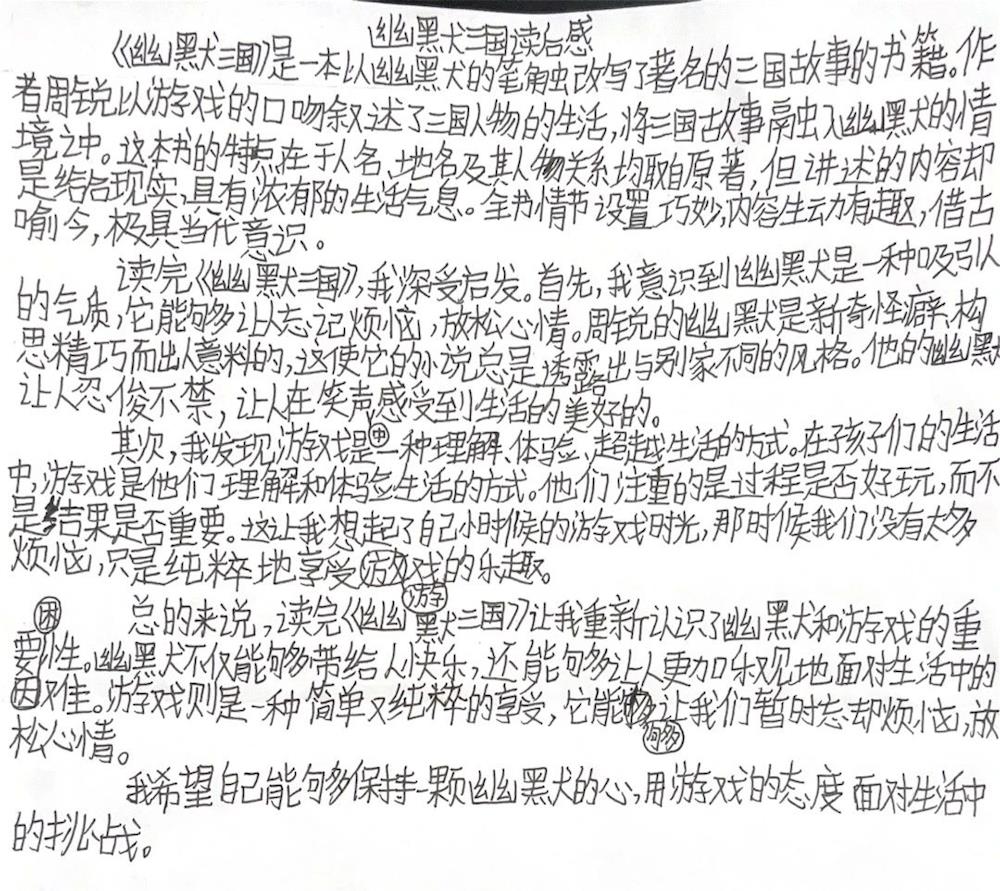 幽默三国读后感
《幽默三国》是一本以幽默的笔触改写了著名的三国故事的书籍。作
者周锐以游戏的口吻叙述了三国人物的生活,将三国故事融入幽默的情
境之中。这本书的特点在于人名、地名及其人物关系均取自原著,但讲述的内容却
是结合现实,具有浓郁的生活气息。全书情节设置巧妙,内容生动有趣,借古
喻今,极具当代意识。
读完《幽默三国》,我深受启发。首先,我意识到幽默是一种吸引人
的气质,它能够让人忘记烦恼,放松心情。周锐的幽默是新奇怪癖、构
思精巧而出人意料的,这使它的小说总是透露出与别家不同的风格。他的幽默
让人忍俊不禁,让人在笑声感受到生活的美好的。
中
其次,我发现游戏是一种理解、体验、超越生活的方式。在孩子们的生活
中,游戏是他们理解和体验生活的方式。他们注重的是过程是否好玩,而不
是结果是否重要。这让我想起了自己小时候的游戏时光,那时候我们没有太多
烦恼,只是纯粹地享受游戏的乐趣。
游
困
总的来说,读完《幽默三国》让我重新认识了幽默和游戏的重
要性。幽默不仅能够带给人快乐,还能够让人更加乐观地面对生活中的
因难。游戏则是一种简单又纯粹的享受,它能够让我们暂时忘却烦恼,放
够
松心情。
我希望自己能够保持一颗幽默的心,用游戏的态度面对生活中
的挑战。